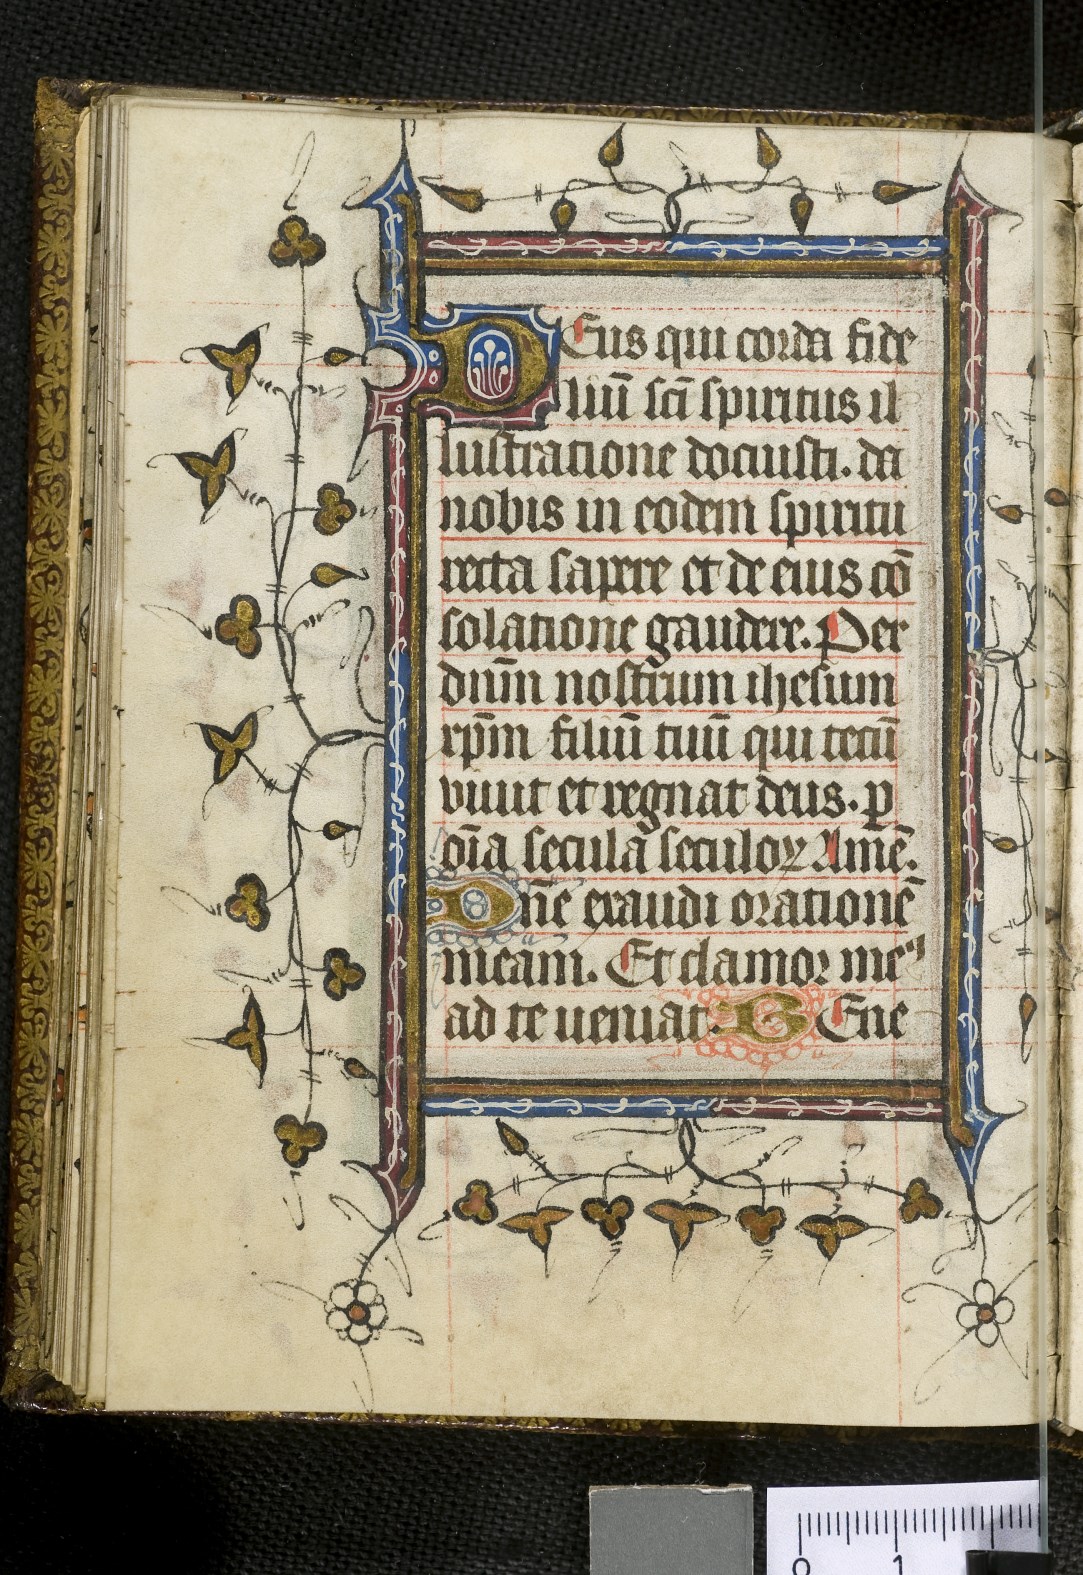 Deus qui corda fide
liū sc̄i spiritus il
lustratione docuisti. da
nobis in eodem spiritu
recta sapere et de eius cō
solatione gaudere. Per
dn̄m nostrum ihesum
xp̄m filiū tuū qui tecū
viuit et regnat deus. p
oīa secula seculoꝝ Amē.
Dn̄e exaudi orationē
meam. Et clamor meꝰ
ad te ueniat. B Ene
0 1